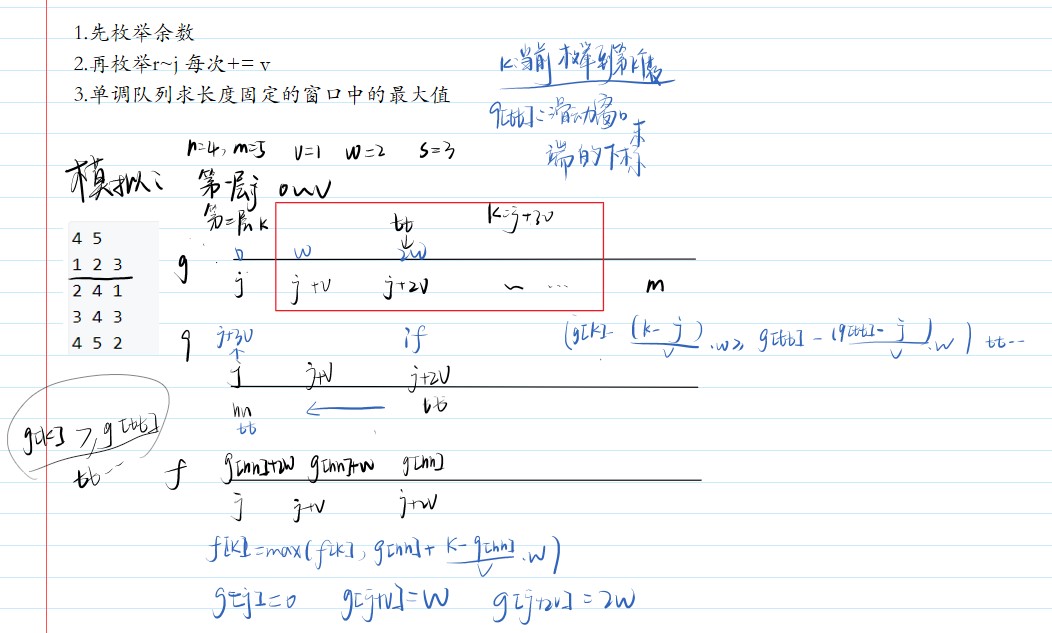 1.先枚举余数
2.再枚举r~j 每次+= v
3.单调队列求长度固定的窗口中的最大值
k:当前枚举到第k个数
q[tt]:滑动窗口末
端的下标
n=4, m=5 v=1 w=2 s=3
模拟: 第一层j 0~v
第二层k
4 5
1 2 3
2 4 1
3 4 3
4 5 2
tt k=j+3v
g 0 w 2w
j j+v j+2v ~ ... m
q j+3v if (g[k]-(k-j)/v·w ≥ g[tt]-(q[tt]-j)/v·w) tt--
j j+v j+2v
hh tt
tt
g[k] ≥ g[tt]
tt--
f g[hh]+2w g[hh]+w g[hh]
j j+v j+2v
f[k]=max(f[k], g[hh]+(k-q[hh])/v·w)
g[j]=0 g[j+v]=w g[j+2v]=2w